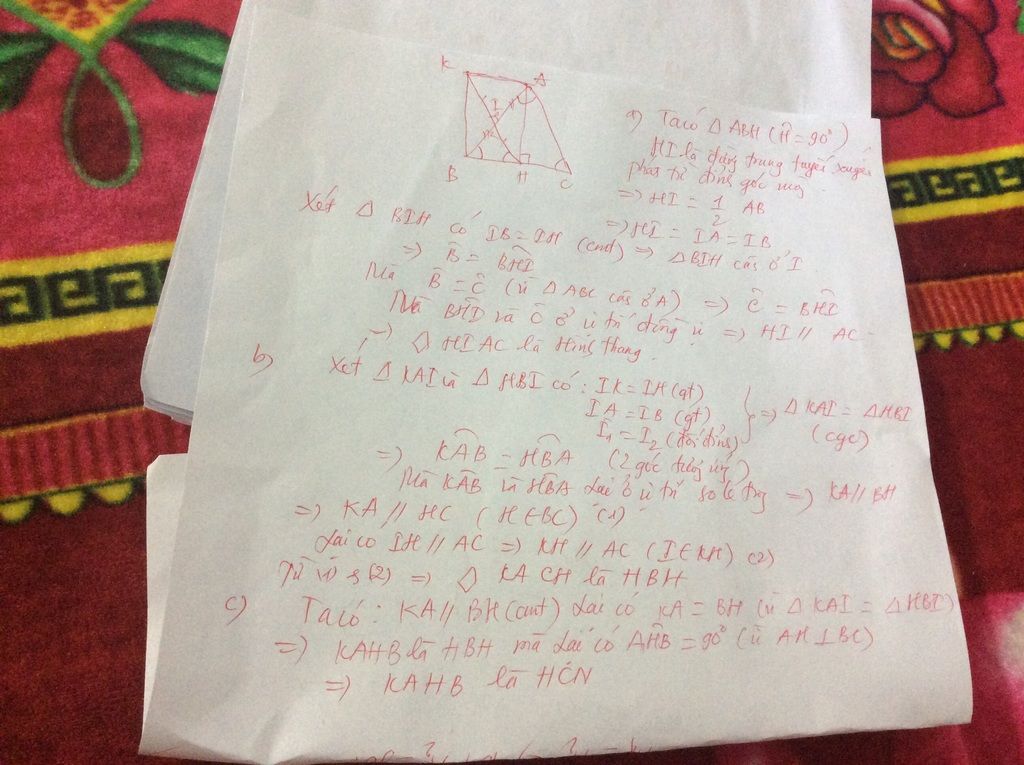 K
A
I
1
2
B
H
C
a) Ta có Δ ABH (Ĥ = 90°)
HI là đường trung tuyến xuất
phát từ đỉnh góc vuông
=> HI = 1/2 AB
=> HI = IA = IB
Xét Δ BIH có IB = IH (cmt) => ΔBIH cân ở I
=> B̂ = BĤI
Mà B̂ = Ĉ (vì Δ ABC cân ở A) => Ĉ = BĤI
Mà BĤI và Ĉ ở vị trí đồng vị => HI // AC
=> ◇ HIAC là Hình thang.
b) Xét Δ KAI và Δ HBI có: IK = IH (gt)
IA = IB (gt)
Î1 = I2 (đối đỉnh)
} => Δ KAI = ΔHBI
(cgc)
=> KÂB = HB̂A (2 góc tương ứng)
Mà KÂB và HB̂A lại ở vị trí so le trg => KA // BH
=> KA // HC (H ∈ BC) (1)
Lại có IH // AC => KH // AC (I ∈ KH) (2)
Từ (1) & (2) => ◇ KACH là HBH
c) Ta có: KA // BH (cmt) Lại có KA = BH (vì Δ KAI = Δ HBI)
=> KAHB là HBH mà lại có AĤB = 90° (vì AH ⊥ BC)
=> KAHB là HCN